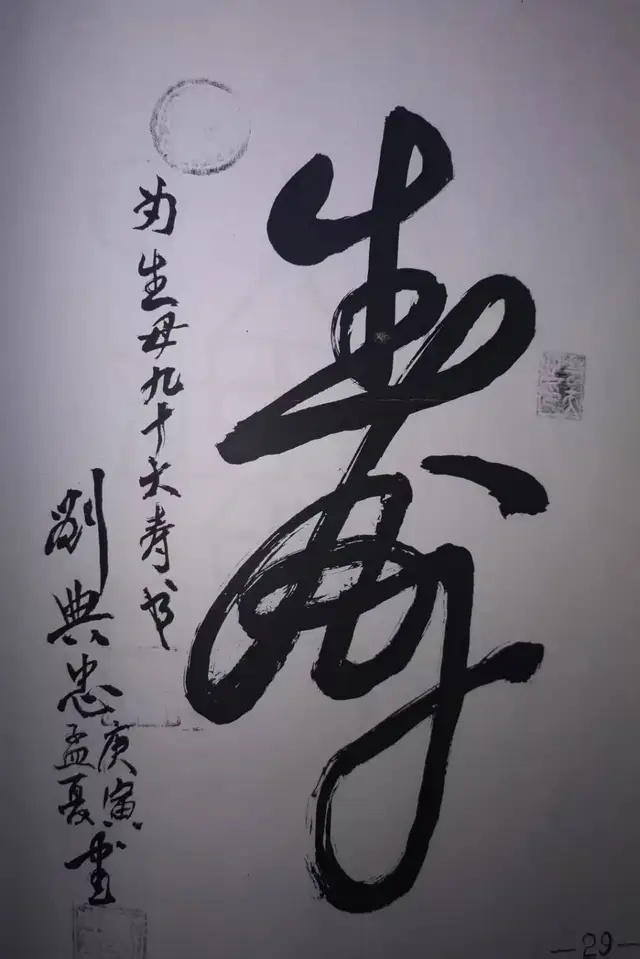 壽
为生母九十大寿书
劉典忠
庚寅
孟夏書
—29—